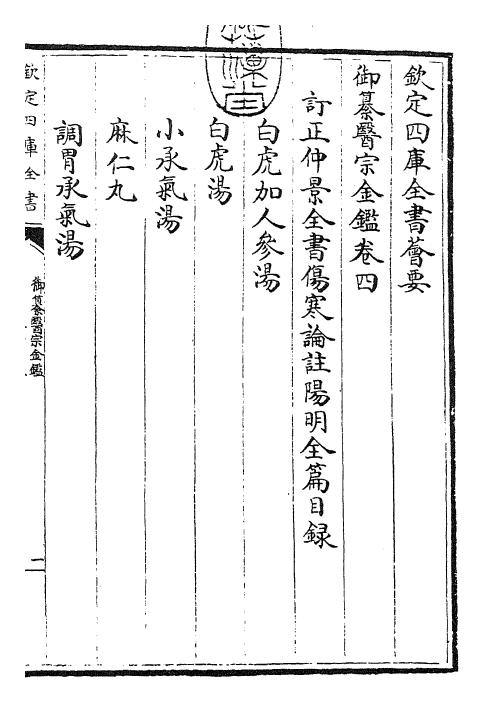 欽定四庫全書薈要
御纂醫宗金鑑卷四
訂正仲景全書傷寒論註陽明全篇目録
白虎加人參湯
白虎湯
小承氣湯
麻仁丸
調胃承氣湯
欽定四庫全書
御纂醫宗金鑑
二